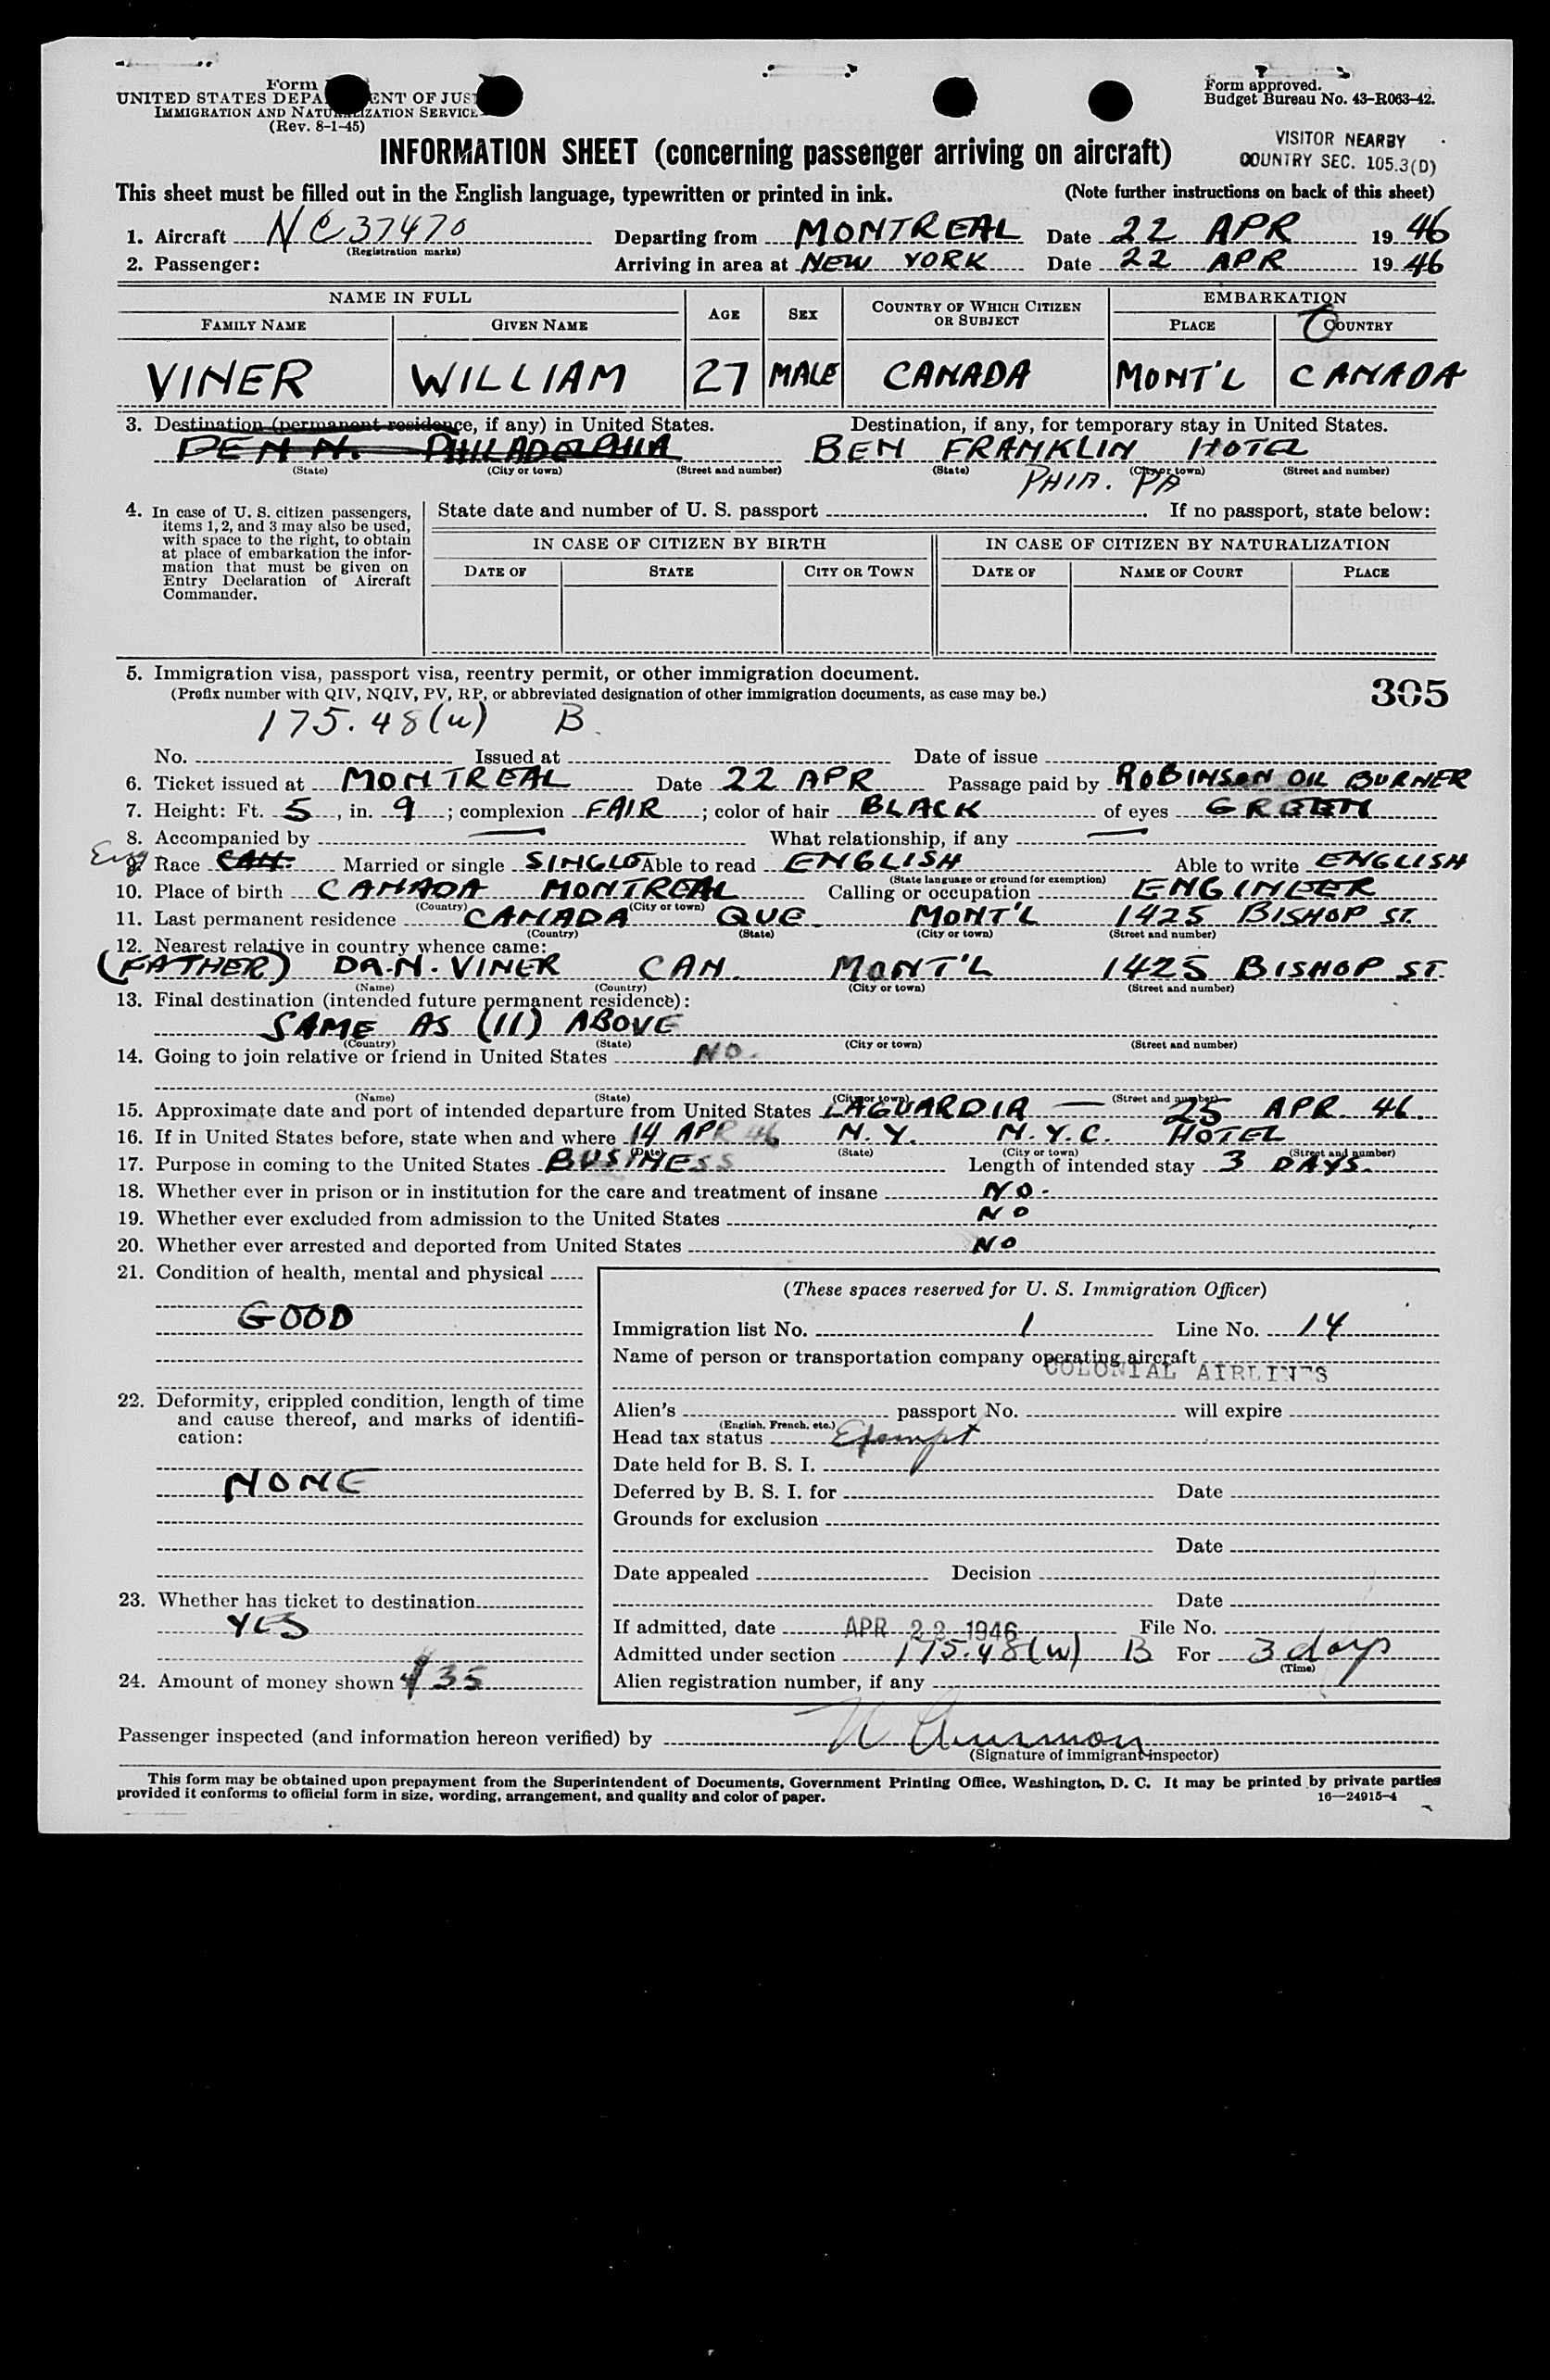 Form
UNITED STATES DEPA ENT OF JUS
IMMIGRATION AND NATURALIZATION SERVICE
(Rev. 8-1-45)
Form approved.
Budget Bureau No. 43-R063-42.
INFORMATION SHEET (concerning passenger arriving on aircraft)
VISITOR NEARBY
COUNTRY SEC. 105.3(D)
This sheet must be filled out in the English language, typewritten or printed in ink. (Note further instructions on back of this sheet)
1. Aircraft NC37470 Departing from MONTREAL Date 22 APR 1946
(Registration marks)
2. Passenger: Arriving in area at NEW YORK Date 22 APR 1946
NAME IN FULL AGE SEX COUNTRY OF WHICH CITIZEN OR SUBJECT EMBARKATION
FAMILY NAME GIVEN NAME PLACE COUNTRY
VINER WILLIAM 27 MALE CANADA MONT'L CANADA
3. Destination (permanent residence, if any) in United States. Destination, if any, for temporary stay in United States.
PENN. PHILADELPHIA BEN FRANKLIN HOTEL
(State) (City or town) (Street and number) (State) (City or town) (Street and number)
PHIA. PA
4. In case of U. S. citizen passengers, items 1, 2, and 3 may also be used, with space to the right, to obtain at place of embarkation the information that must be given on Entry Declaration of Aircraft Commander.
State date and number of U. S. passport . If no passport, state below:
IN CASE OF CITIZEN BY BIRTH IN CASE OF CITIZEN BY NATURALIZATION
DATE OF STATE CITY OR TOWN DATE OF NAME OF COURT PLACE
5. Immigration visa, passport visa, reentry permit, or other immigration document.
(Prefix number with QIV, NQIV, PV, RP, or abbreviated designation of other immigration documents, as case may be.)
305
175.48(w) B.
No. Issued at Date of issue
6. Ticket issued at MONTREAL Date 22 APR Passage paid by ROBINSON OIL BURNER
7. Height: Ft. 5, in. 9; complexion FAIR; color of hair BLACK of eyes GREEN
8. Accompanied by — What relationship, if any —
Eng
9. Race CAN. Married or single SINGLE Able to read ENGLISH Able to write ENGLISH
(State language or ground for exemption)
10. Place of birth CANADA MONTREAL Calling or occupation ENGINEER
(Country) (City or town)
11. Last permanent residence CANADA QUE. MONT'L 1425 BISHOP ST.
(Country) (State) (City or town) (Street and number)
12. Nearest relative in country whence came:
(FATHER) DR. N. VINER CAN. MONT'L 1425 BISHOP ST.
(Name) (Country) (City or town) (Street and number)
13. Final destination (intended future permanent residence):
SAME AS (11) ABOVE
(Country) (State) (City or town) (Street and number)
14. Going to join relative or friend in United States NO.
(Name) (State) (City or town) (Street and number)
15. Approximate date and port of intended departure from United States LAGUARDIA — 25 APR. 46.
16. If in United States before, state when and where 14 APR 46 N.Y. N.Y.C. HOTEL
(Date) (State) (City or town) (Street and number)
17. Purpose in coming to the United States BUSINESS Length of intended stay 3 DAYS.
18. Whether ever in prison or in institution for the care and treatment of insane NO.
19. Whether ever excluded from admission to the United States NO
20. Whether ever arrested and deported from United States NO
21. Condition of health, mental and physical
GOOD
22. Deformity, crippled condition, length of time and cause thereof, and marks of identification:
NONE
23. Whether has ticket to destination
YES
24. Amount of money shown $35
(These spaces reserved for U. S. Immigration Officer)
Immigration list No. 1 Line No. 14
Name of person or transportation company operating aircraft
COLONIAL AIRLINES
Alien's passport No. will expire
(English, French, etc.)
Head tax status Exempt
Date held for B. S. I.
Deferred by B. S. I. for Date
Grounds for exclusion
Date
Date appealed Decision
Date
If admitted, date APR 22 1946 File No.
Admitted under section 175.48(w) B For 3 days
(Time)
Alien registration number, if any
Passenger inspected (and information hereon verified) by
(Signature of immigrant inspector)
This form may be obtained upon prepayment from the Superintendent of Documents, Government Printing Office, Washington, D. C. It may be printed by private parties
provided it conforms to official form in size, wording, arrangement, and quality and color of paper. 16—24915-4